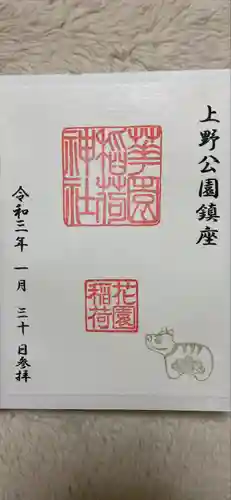 上野公園鎮座
華園
稲荷
神社
花園
稲荷
令和三年 一月 三十 日参拝